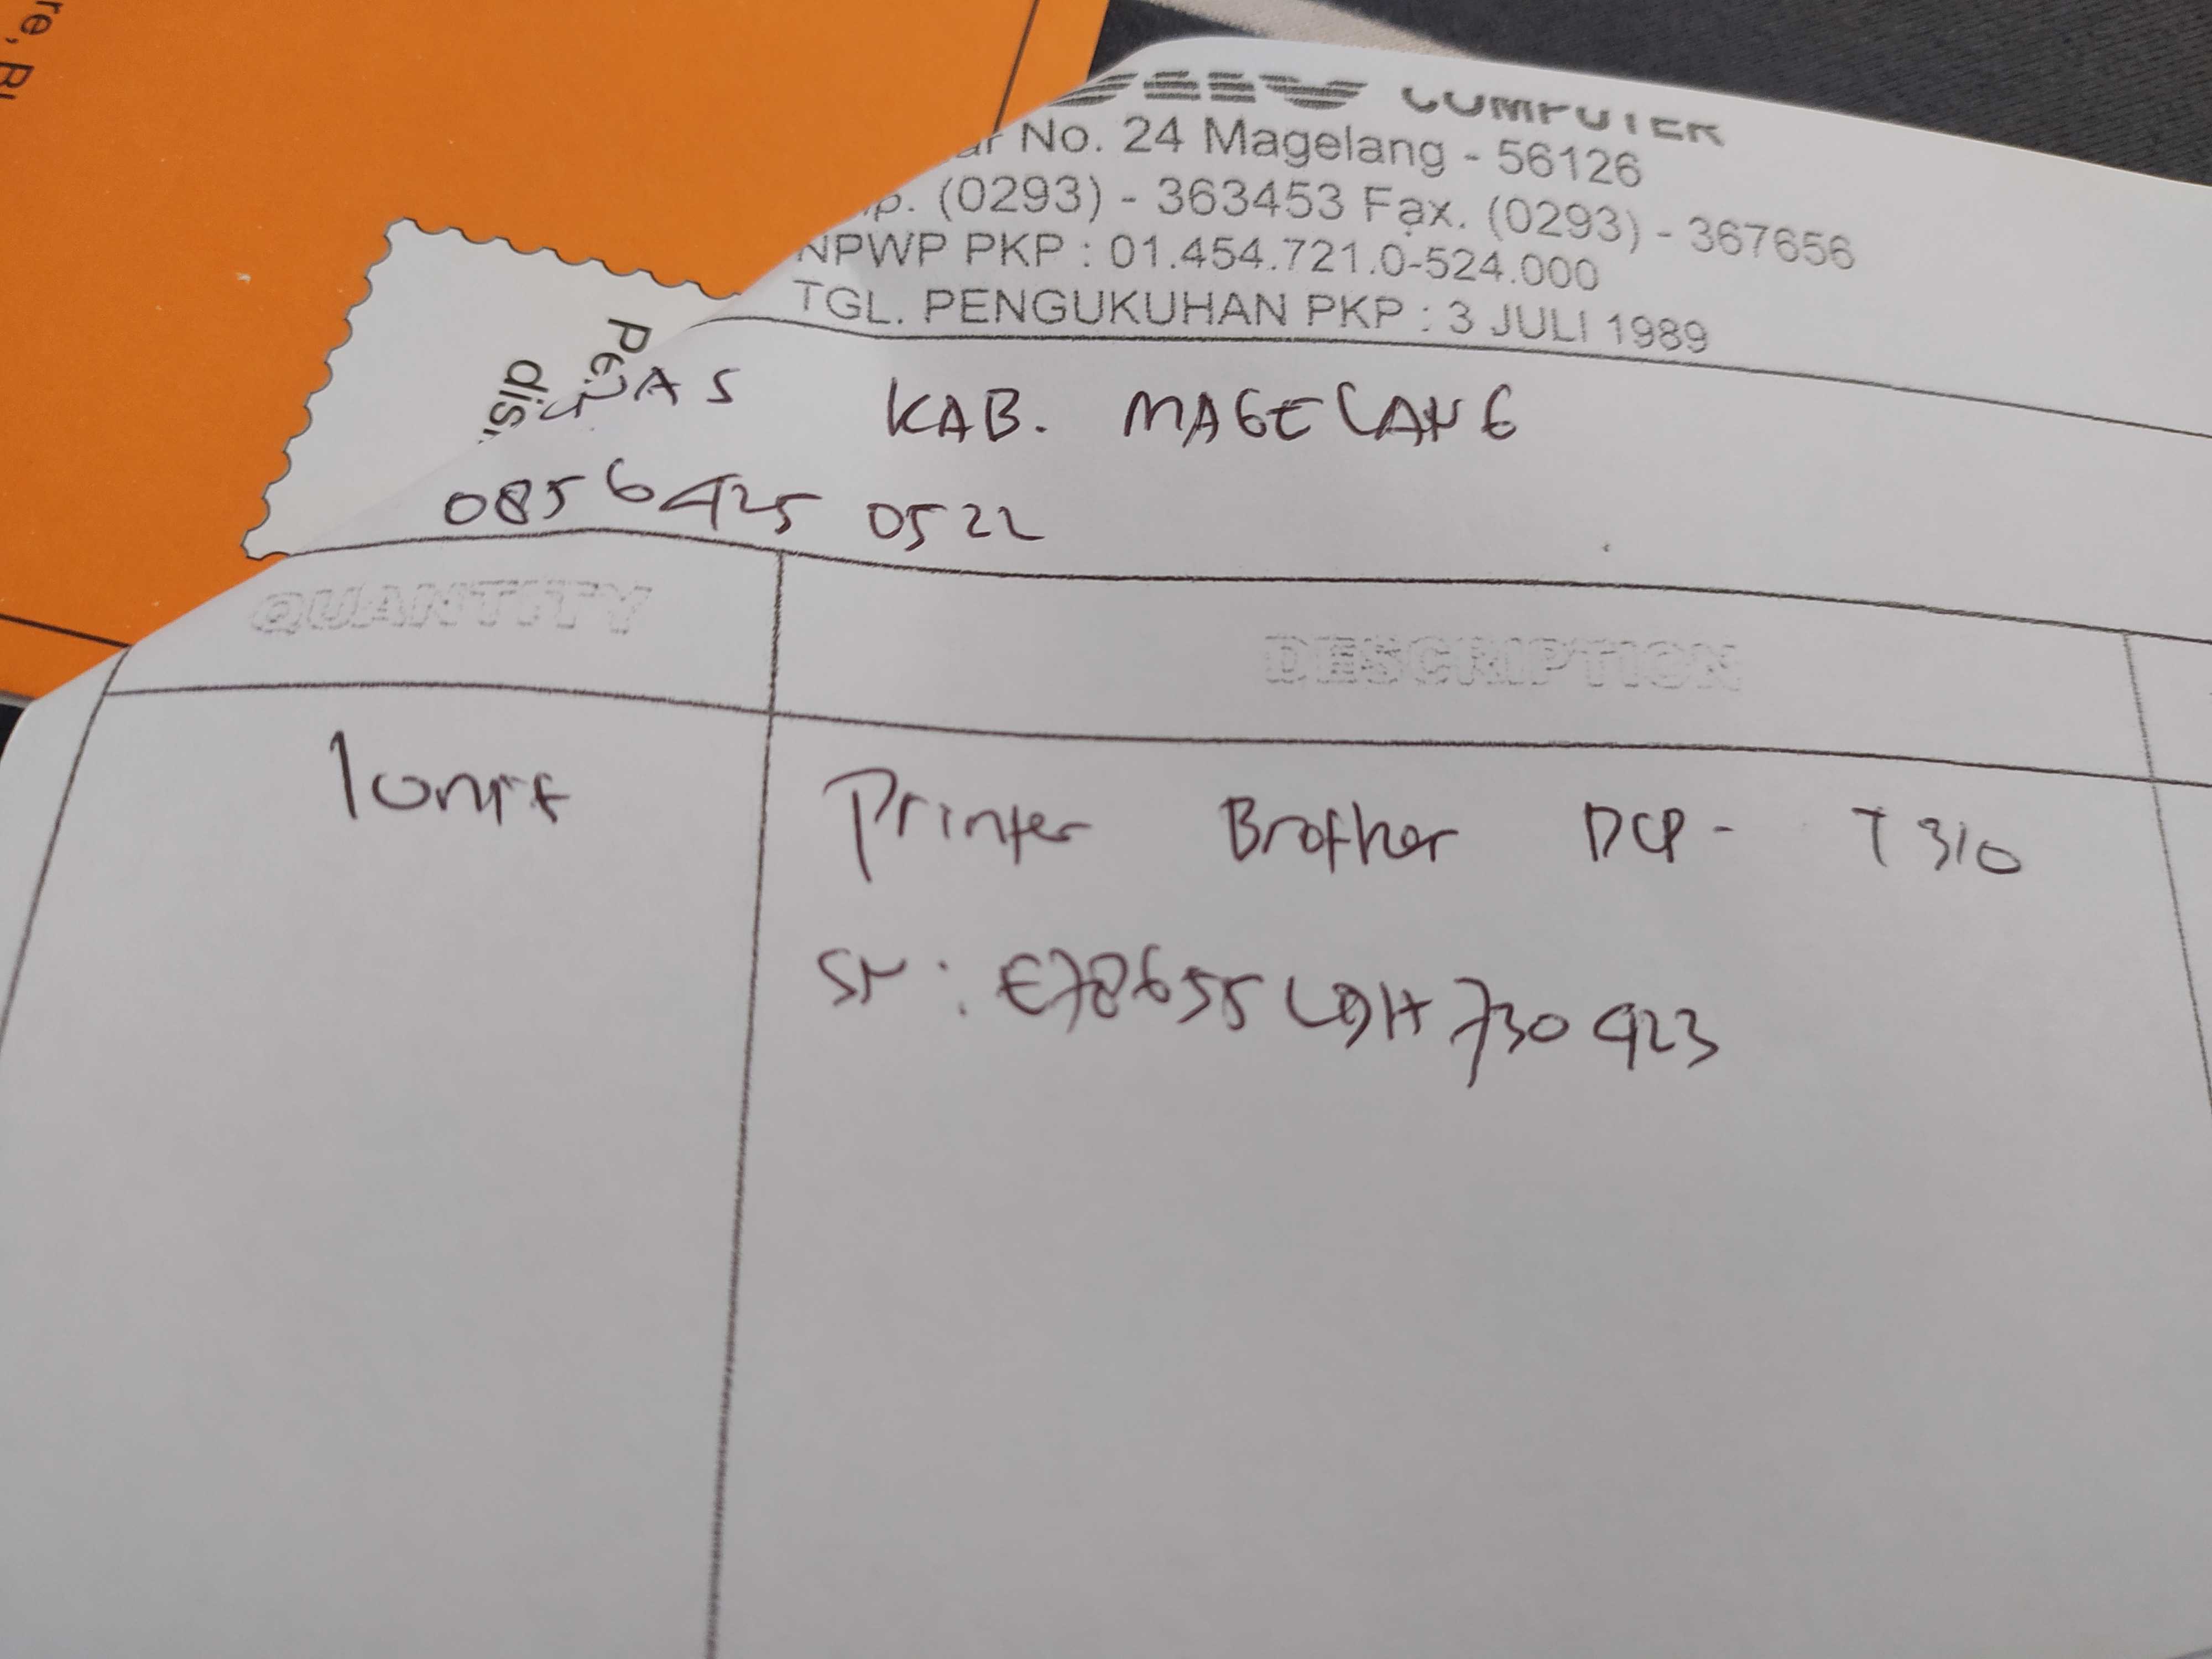 COMPUTER
No. 24 Magelang - 56126
(0293) - 363453 Fax. (0293) - 367656
NPWP PKP : 01.454.721.0-524.000
TGL. PENGUKUHAN PKP : 3 JULI 1989
KAB. MAGELANG
0856 425 0522
QUANTITY DESCRIPTION
1 unit Printer Brother DCP - T310
SN : E78655L9H730423